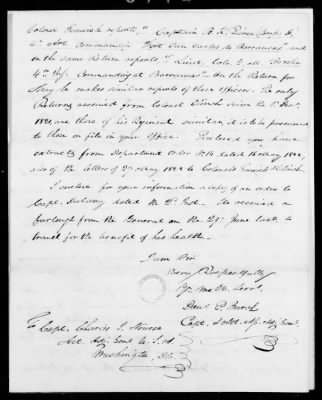 Colonel Fenwick reports, "Captain B. K. Pierce, Comp. D,
4th Art. Commanding Fort San Carlos de Barrancas" and
on the same Return reports "Lieut. Col. D. L. Clinch
4th Inf. Commanding at Barrancas" – On the Return for
May he makes similar reports of those officers. The only
Returns received from Colonel Clinch since the 1st Decr.
1821, are those of his Regiment similar, it is to be presumed
to those on file in your office. Enclosed you have
extracts from Department Order dated May 1822,
also of the letters of 2d May 1822 to Colonels Fenwick & Clinch.
I enclose for your information a copy of an order to
Capt. dated the 2d Inst. He received a
furlough from the General on the 29th June last, to
travel for the benefit of his health.
I am Sir
Very Respectfully
Yr. Mo. Ob. Servt.
Danl. E. Burch
Capt. & Asst. Adj. Genl.
To Capt. Charles J. Nourse
Act. Adj. Genl. U. S. A.
Washington, D.C.